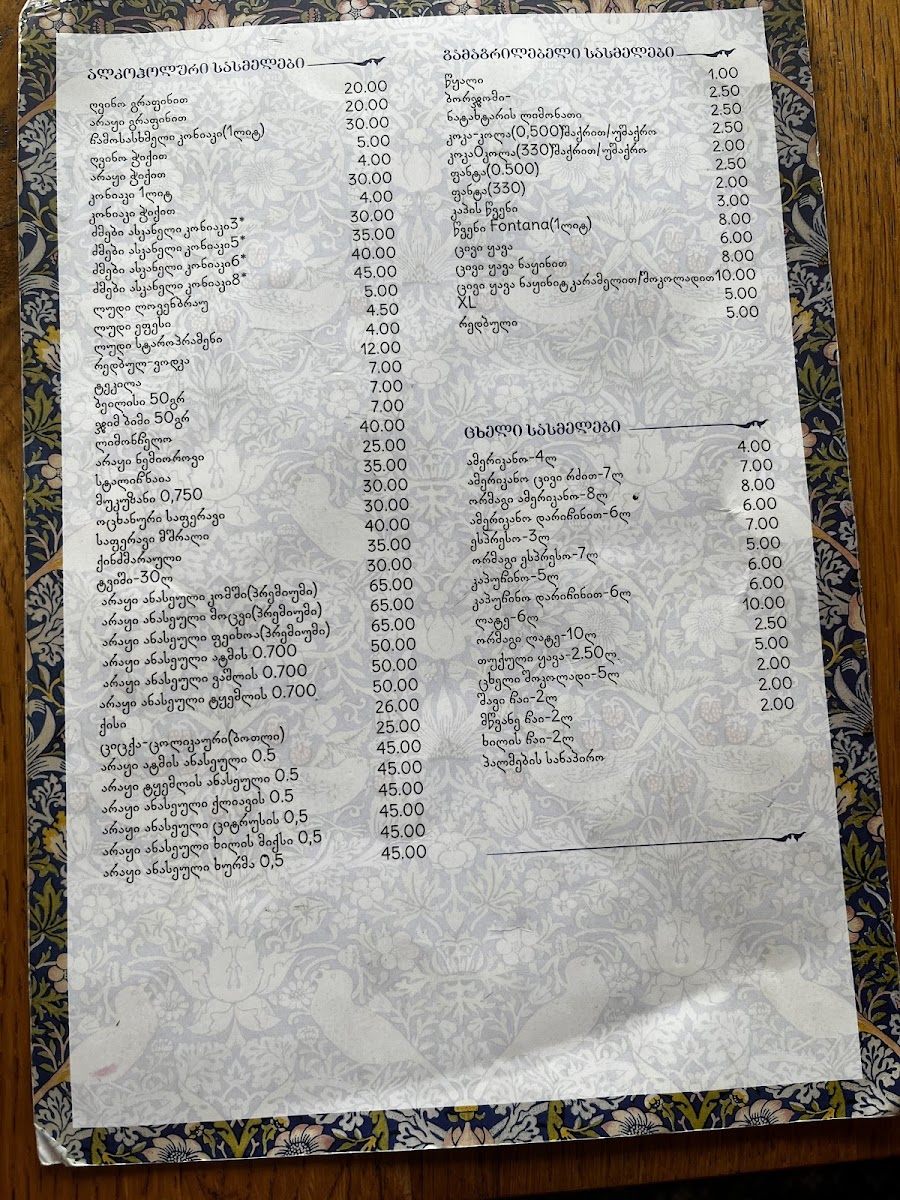 ალკოჰოლური სასმელები
ღვინო გრაფინით 20.00
არაყი გრაფინით 20.00
ჩამოსასხმელი კონიაკი(1ლიტ) 30.00
ღვინო ჭიქით 5.00
არაყი ჭიქით 4.00
კონიაკი 1ლიტ 30.00
კონიაკი ჭიქით 4.00
ძმები ასკანელი კონიაკი3* 30.00
ძმები ასკანელი კონიაკი5* 35.00
ძმები ასკანელი კონიაკი6* 40.00
ძმები ასკანელი კონიაკი8* 45.00
ლუდი ლოვენბრაუ 5.00
ლუდი ეფესი 4.50
ლუდი სტაროპრამენი 4.00
რედბულ-ვოდკა 12.00
ტეკილა 7.00
ბეილისი 50გრ 7.00
ჯიმ ბიმი 50გრ 7.00
ლიმონჩელო 40.00
არაყი ნემიოროვი 25.00
სტალიჩნაია 35.00
მუკუზანი 0,750 30.00
ოცხანური საფერავი 30.00
საფერავი მშრალი 40.00
ქინძმარაული 35.00
ტვიში-30ლ 30.00
არაყი ანასეული კომში(პრემიუმი) 65.00
არაყი ანასეული მოცვი(პრემიუმი) 65.00
არაყი ანასეული ფეიხოა(პრემიუმი) 65.00
არაყი ანასეული ატმის 0.700 50.00
არაყი ანასეული ვაშლის 0.700 50.00
არაყი ანასეული ტყემლის 0.700 50.00
ქისი 26.00
ციცქა-ცოლიკაური(ბოთლი) 25.00
არაყი ატმის ანასეული 0.5 45.00
არაყი ტყემლის ანასეული 0.5 45.00
არაყი ანასეული ქლიავის 0.5 45.00
არაყი ანასეული ციტრუსის 0,5 45.00
არაყი ანასეული ხილის მიქსი 0,5 45.00
არაყი ანასეული ხურმა 0,5 45.00
გამაგრილებელი სასმელები
წყალი 1.00
ბორჯომი- 2.50
ნატახტარის ლიმონათი 2.50
კოკა-კოლა(0,500)შაქრით/უშაქრო 2.50
კოკა0კოლა(330)შაქრით/უშაქრო 2.00
ფანტა(0.500) 2.50
ფანტა(330) 2.00
კაპის წვენი 3.00
წვენი Fontana(1ლიტ) 8.00
ცივი ყავა 6.00
ცივი ყავა ნაყინით 8.00
ცივი ყავა ნაყინიტ,კარამელით/შოკოლადით 10.00
XL 5.00
რედბული 5.00
ცხელი სასმელები
ამერიკანო-4ლ 4.00
ამერიკანო ცივი რძით-7ლ 7.00
ორმაგი ამერიკანო-8ლ 8.00
ამერიკანო დარიჩინით-6ლ 6.00
ესპრესო-3ლ 7.00
ორმაგი ესპრესო-7ლ 5.00
კაპუჩინო-5ლ 6.00
კაპუჩინო დარიჩინით-6ლ 6.00
ლატე-6ლ 10.00
ორმაგი ლატე-10ლ 2.50
თუქული ყავა-2.50ლ 5.00
ცხელი შოკოლადი-5ლ 2.00
შავი ჩაი-2ლ 2.00
მწვანე ჩაი-2ლ 2.00
ხილის ჩაი-2ლ
პალმების სანაპირო